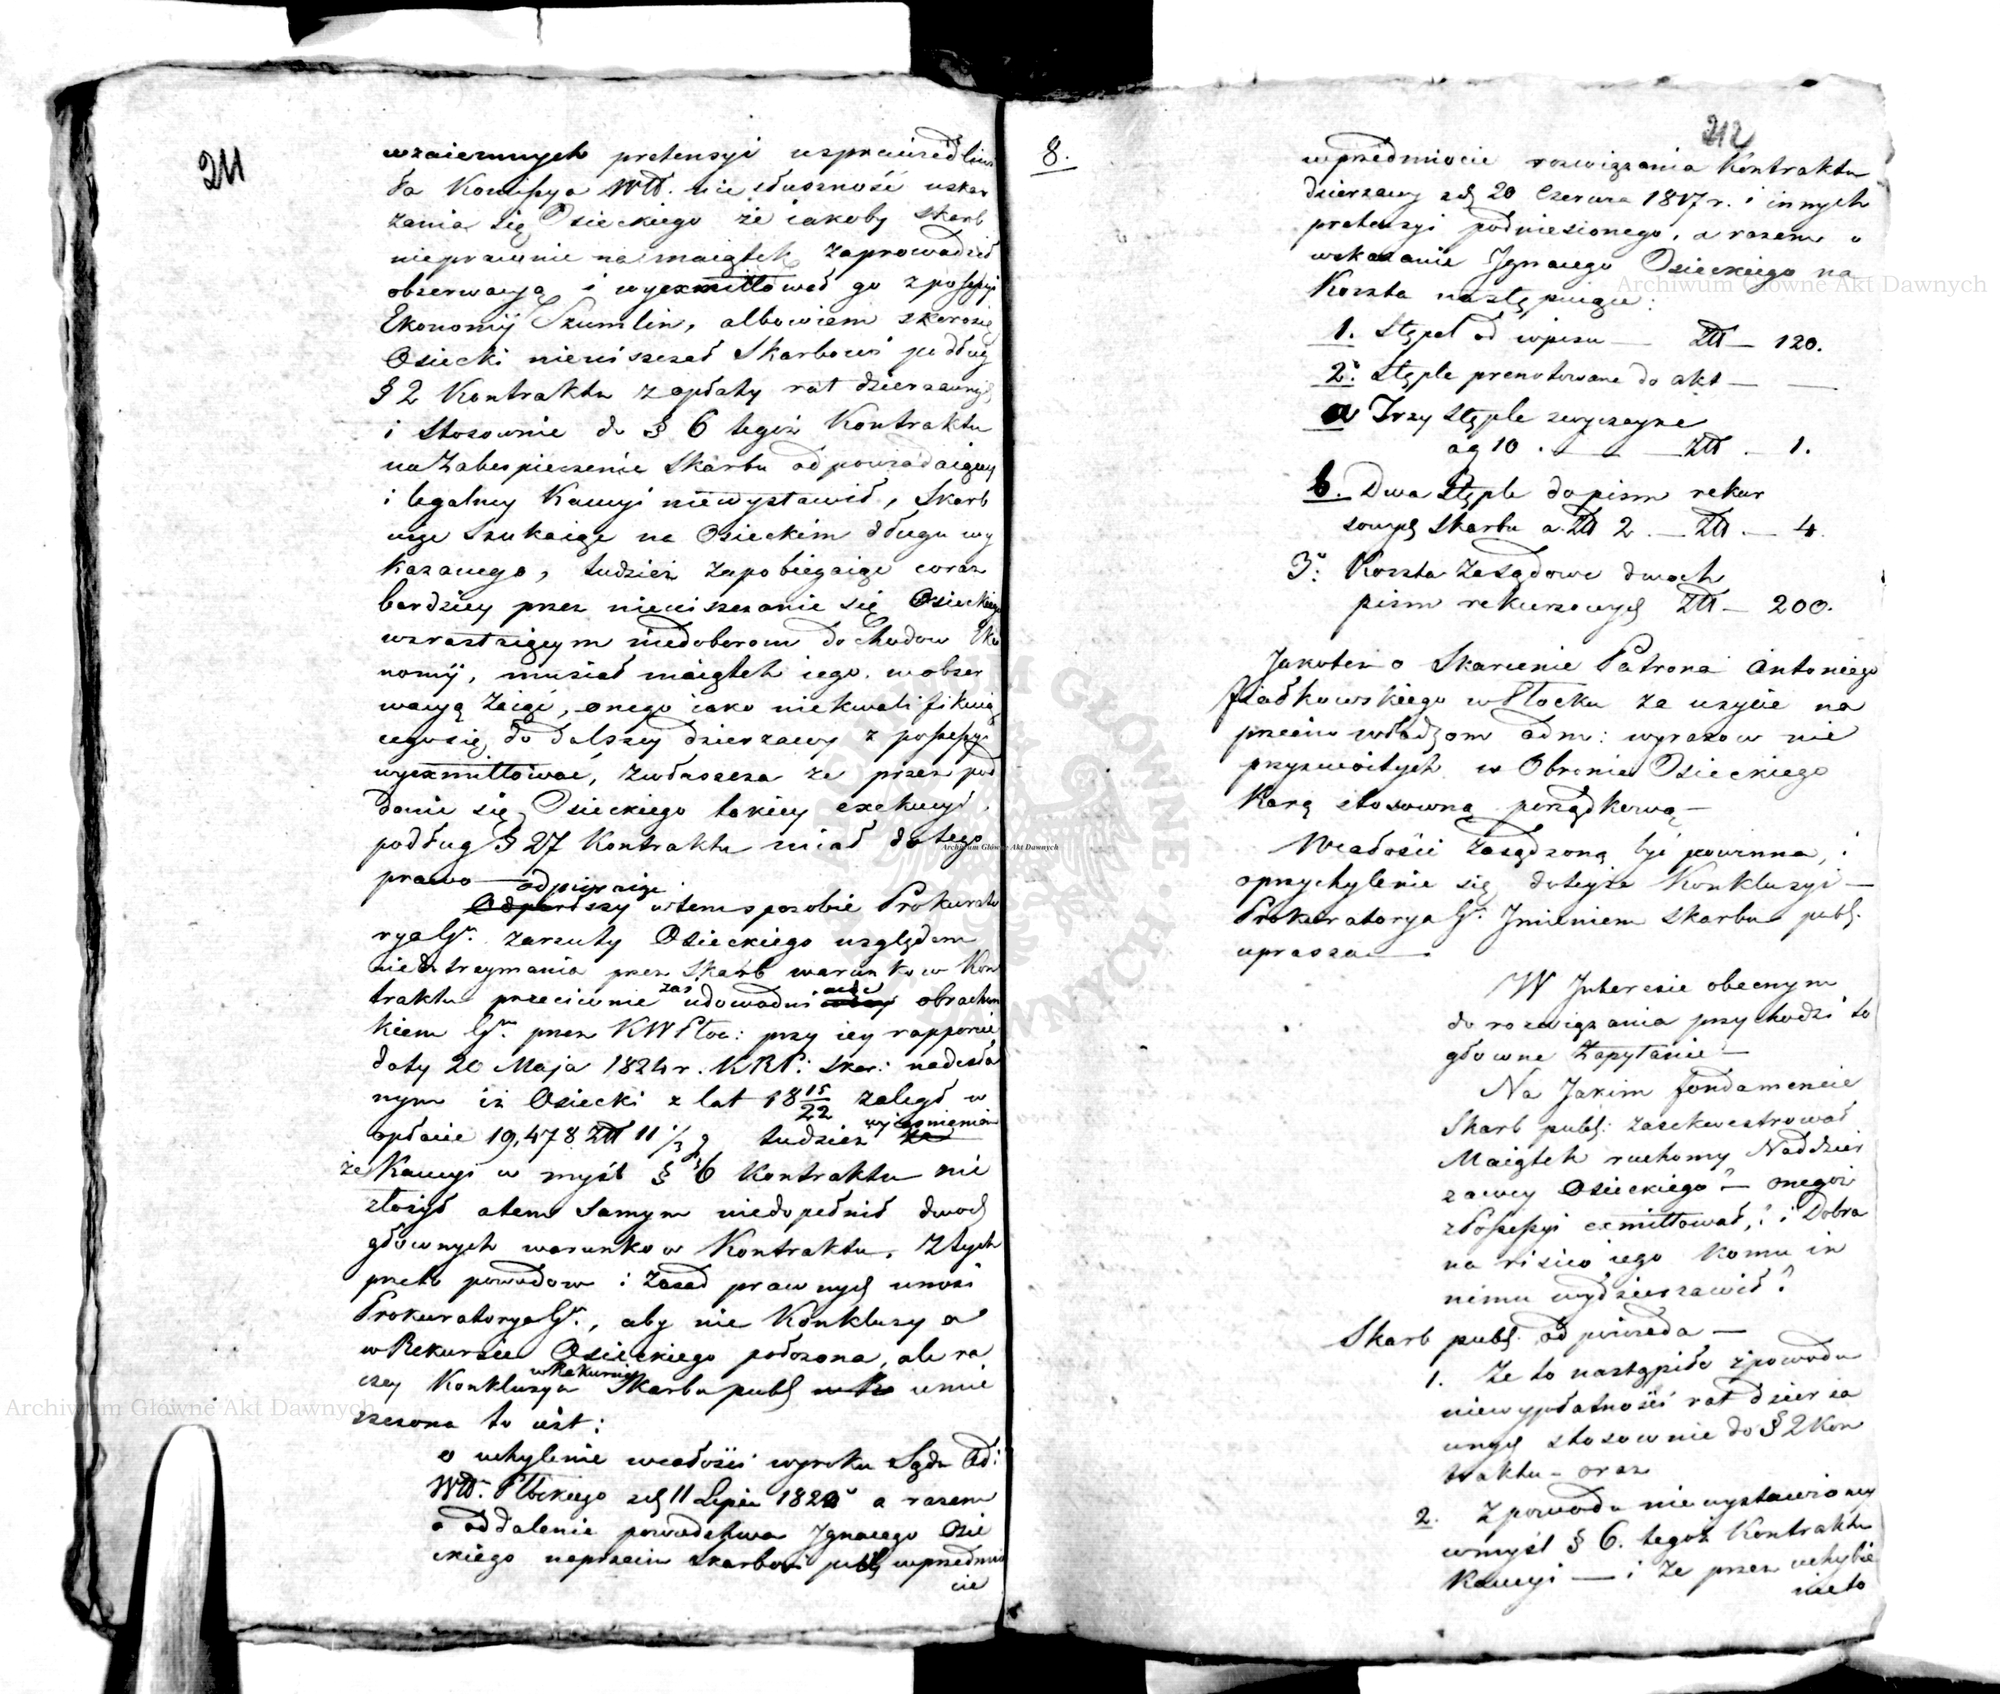 211
wzaiemnych pretensyi usprawiedliwi
ła Komissya Wd. nie słuszność uskar
żania się Osieckiego że iakoby Skarb
nieprawnie na maiątek zaprowadził
obserwacyą i wyexmittował go z possessyi
Ekonomij Szumlin, albowiem skoro się
Osiecki nieuiszczał Skarbowi podług
§ 2 Kontraktu z opłaty rat dzierżawnych
i stosownie do § 6 tegoż Kontraktu
na zabespieczenie Skarbu odpowiadaiącey
i legalney Kaucyi niewystawił, Skarb
więc szukaiąc na Osieckim długu wy
kazanego, tudzież zapobiegaiąc coraz
bardziey przez nieuiszczanie się Osieckiego
wzrastaiącym niedoborom dochodow Eko
nomij, musiał maiątek iego w obser
wacyą zaiąć, onego iako niekwalifikuią
cego się do dalszey dzierżawy z possessyi
wyexmittować, zwłaszcza że przez pod
danie się Osieckiego takiey exekucyi
podług § 27 Kontraktu miał do tego
prawo —
odpieraiąc
Odparłszy w tem sposobie Prokurato
rya Gł. zarzuty Osieckiego względem
niedotrzymania przez Skarb warunkow Kon
traktu przeciwnie zaś udowadniaiąc obrachun
kiem Gł. przez KWPłoc: przy iey rapporcie
daty 20 Maja 1824 r. KRP: Skar: nadesła
nym iż Osiecki z lat 18 15/22 zaległ w
opłacie 19,478 Złł 11 1/3 g tudzież wyiaśnieniem
że Kaucyi w myśl § 6 Kontraktu nie
złożył a tem samym niedopełnił dwoch
głownych warunkow Kontraktu. Z tych
przeto powodow i zasad prawnych wnosi
Prokuratorya Gł., aby nie Konkluzya
w Rekursie Osieckiego położona, ale ra
czey Konkluzya w Rekursie Skarbu publ umie
szczona to iest:
o uchylenie w całości wyroku Sądu Ad:
Wd. Płockiego z d 11 Lipca 182 a razem
o oddalenie powodztwa Ignacego Osie
ckiego naprzeciw Skarbowi publ w przedmio
cie
8.
212
w przedmiocie rozwiązania Kontraktu
dzierżawy z d 20 Czerwca 1817 r. i innych
pretensyi podniesionego, a razem o
wskazanie Ignacego Osieckiego na
Koszta następuiące:
1. Stępel od wpisu — Złł — 120.
2. Stęple prenotowane do akt — —
a Trzy stęple zwyczayne
a g 10 . — — Złł — 1.
b. Dwa stęple do pism rekur
sowych Skarbu a Złł 2 . — Złł . — 4.
3. Koszta zasądowe dwoch
pism rekursowych Złł — 200.
Jakoteż o skarcenie Patrona Antoniego
Fiałkowskiego w Płocku za użycie na
przeciw władzom adm: wyrazow nie
przyzwoitych w Obronie Osieckiego
Karą stosowną porządkową —
W całości zasądzoną być powinna, i
o przychylenie się do teyże Konkluzyi —
Prokuratorya Gł. Imieniem Skarbu publ.
uprasza —
W Interesie obecnym
do rozwiązania przychodzi to
głowne Zapytanie —
Na Jakim fondamencie
Skarb publ: zasekwestrował
Maiątek ruchomy Naddzier
zawcy Osieckiego — onegoż
z Possessyi exmittował, i Dobra
na risico iego Komu in
nemu wydzierzawił?
Skarb publ. odpowiada —
1. Ze to nastąpiło z powodu
niewypłatności rat dzierża
wnych stosownie do § 2 Kon
traktu — oraz
2. Z powodu niewystawioney
w myśl § 6. tegoż Kontraktu
Kaucyi — i że przez uchybie
nie to